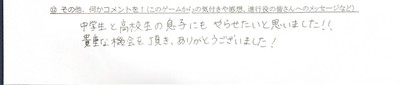 ◎ その他、何かコメントを！（このゲームからの気付きや感想、進行役の皆さんへのメッセージなど）
中学生と高校生の息子にも やらせたいと思いました！！
貴重な機会を頂き、ありがとうございました！